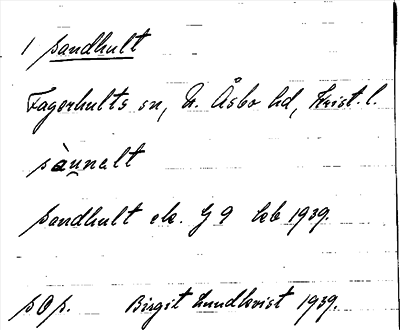 1 Sandhult
Fagerhults sn, N. Åsbo hd, Krist. l.
sànnalt
Sandhult ek. G 9 kb 1939.
Birgit Lundkvist 1939.